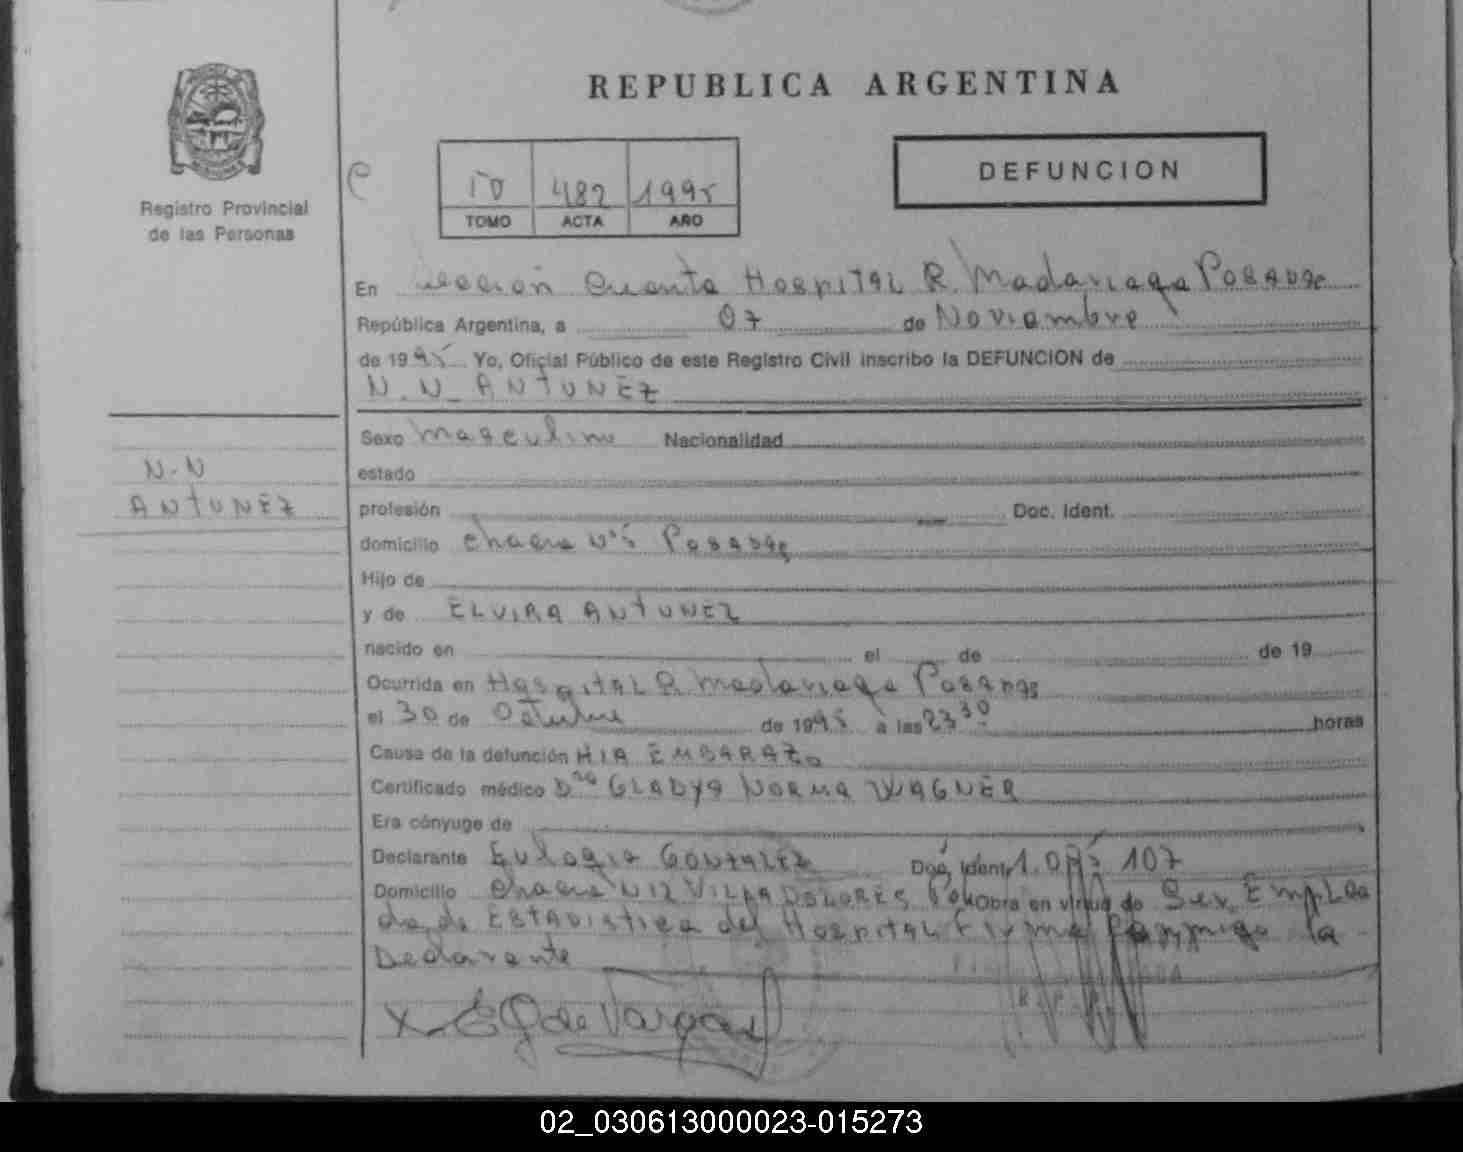 REPUBLICA ARGENTINA
DEFUNCION
482 1995
TOMO ACTA AÑO
Registro Provincial
de las Personas
En Sección Cuarta Hospital R. Madariaga Posadas
República Argentina, a 07 de Noviembre
de 1995 Yo, Oficial Público de este Registro Civil inscribo la DEFUNCION de
N.N. ANTUNEZ
Sexo Masculino Nacionalidad
estado
N.N
ANTUNEZ
profesión Doc. Ident.
domicilio Chacra Nº5 Posadas
Hijo de
y de ELVIRA ANTUNEZ
nacido en el de de 19
Ocurrida en Hospital R. Madariaga Posadas
el 30 de Octubre de 1995 a las 23 30 horas
Causa de la defunción HIA EMBARAZO
Certificado médico Dra GLADYS NORMA WAGNER
Era cónyuge de
Declarante Eulogia GONZALEZ Doc. Ident. 107
Domicilio Chacra VILLA DOLORES Obra en virtud de Ser Emplea
da de ESTADISTICA del Hospital Firma conmigo la
Declarante
de Vargas
02_030613000023-015273